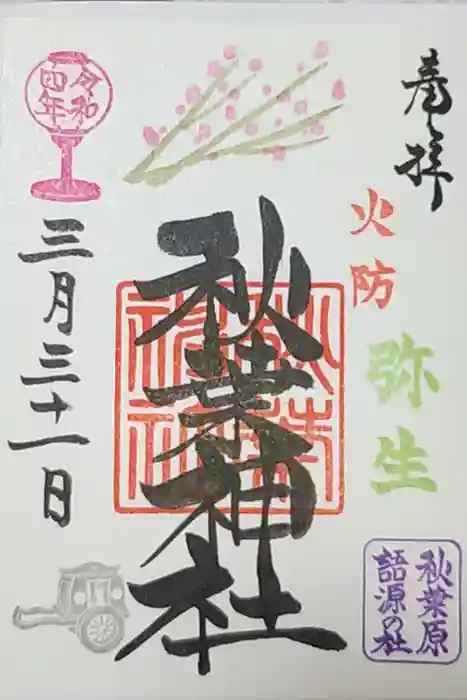 奉拝
火防
弥生
秋葉原
語源の社
秋葉神社
令和
四年
三月三十一日